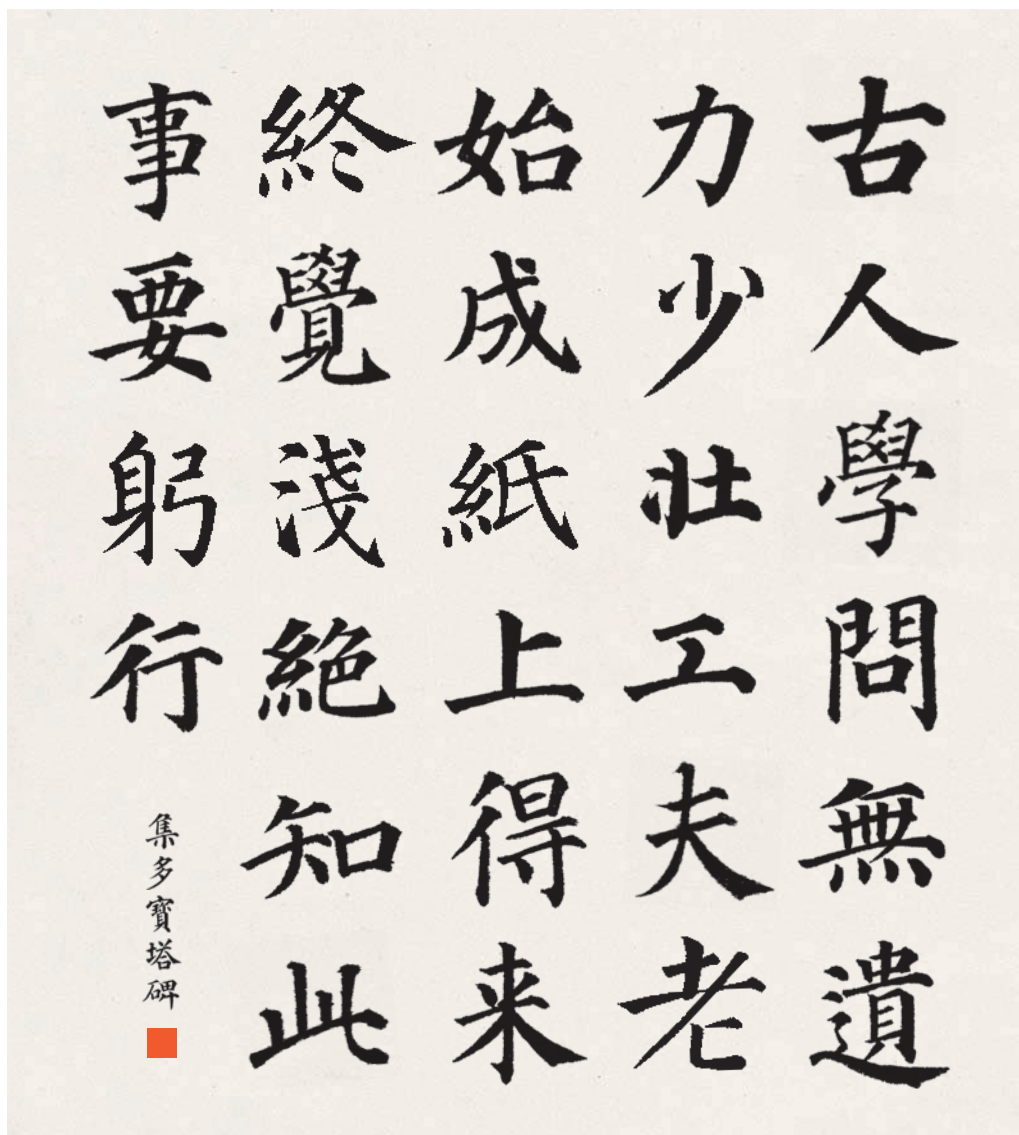 古人學問無遺
力少壯工夫老
始成紙上得来
終覺淺絕知此
事要躬行
集多寶塔碑